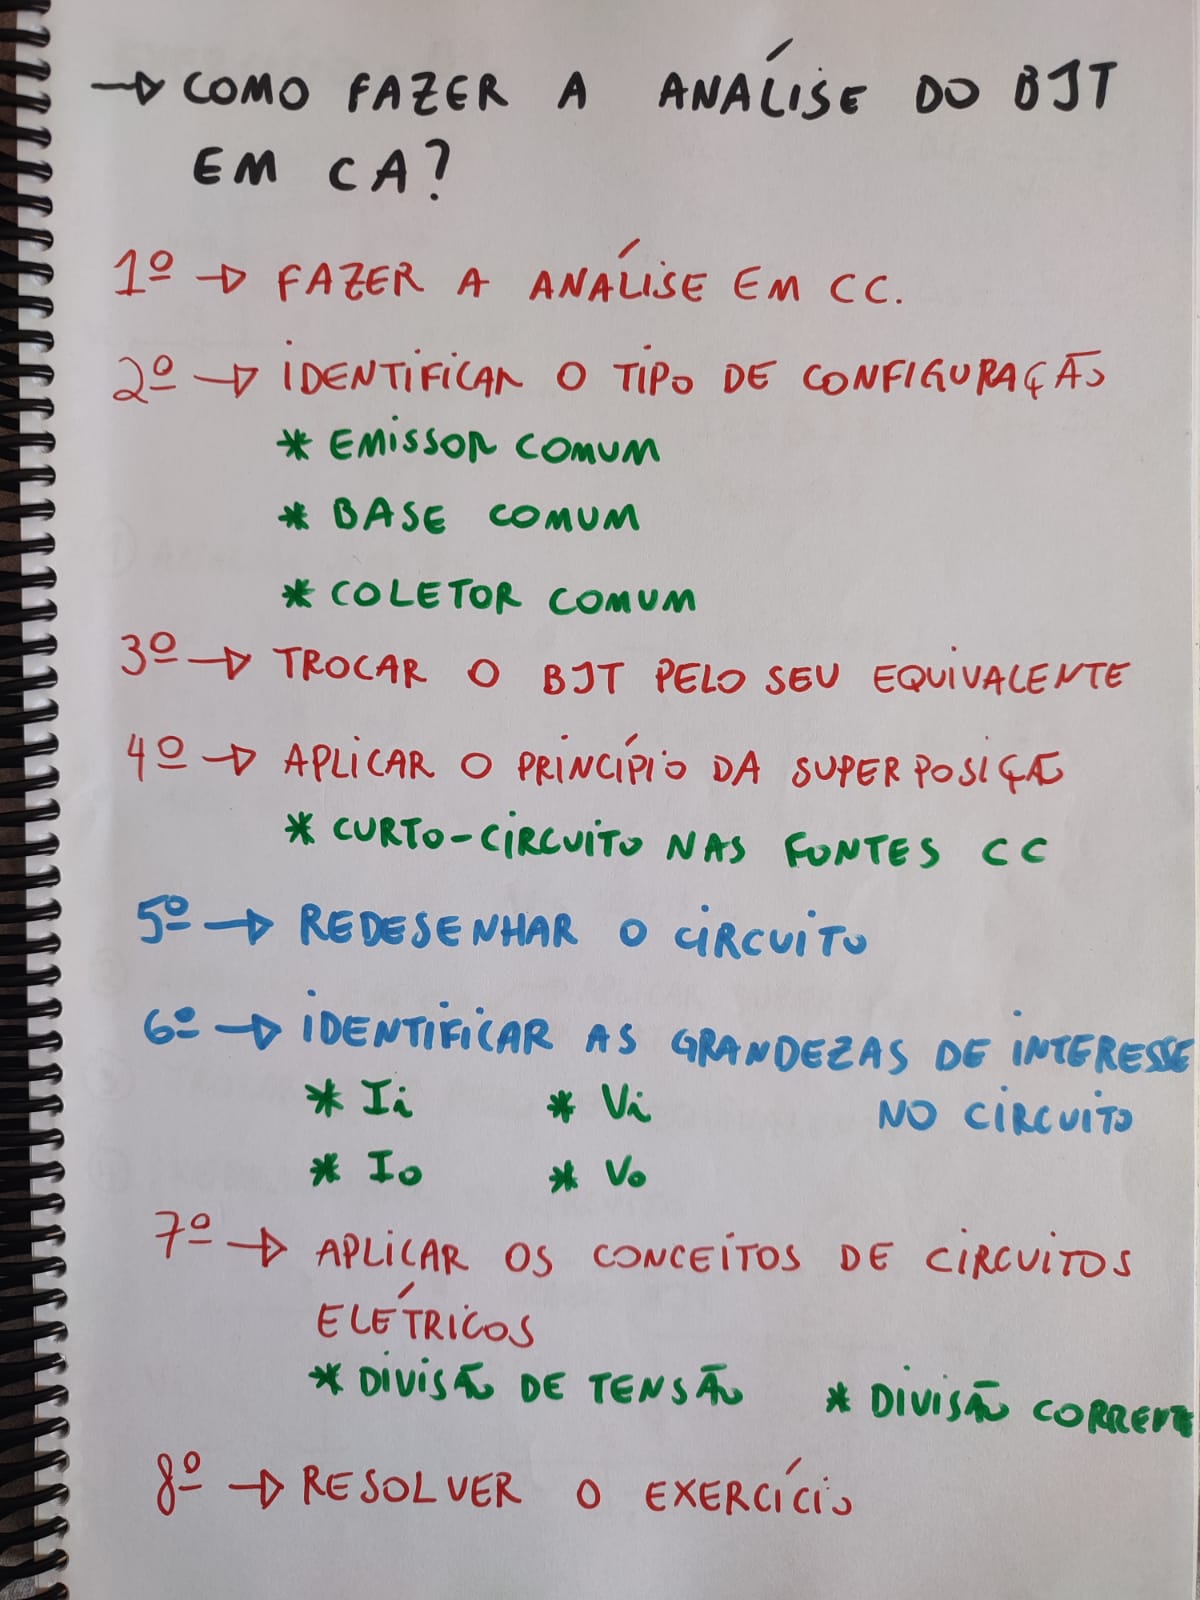 → COMO FAZER A ANÁLISE DO BJT
EM CA?
1º → FAZER A ANÁLISE EM CC.
2º → IDENTIFICAR O TIPO DE CONFIGURAÇÃO
* EMISSOR COMUM
* BASE COMUM
* COLETOR COMUM
3º → TROCAR O BJT PELO SEU EQUIVALENTE
4º → APLICAR O PRINCÍPIO DA SUPERPOSIÇÃO
* CURTO-CIRCUITO NAS FONTES CC
5º → REDESENHAR O CIRCUITO
6º → IDENTIFICAR AS GRANDEZAS DE INTERESSE
NO CIRCUITO
* Ii * Vi
* Io * Vo
7º → APLICAR OS CONCEITOS DE CIRCUITOS
ELÉTRICOS
* DIVISÃO DE TENSÃO * DIVISÃO CORRENTE
8º → RESOLVER O EXERCÍCIO